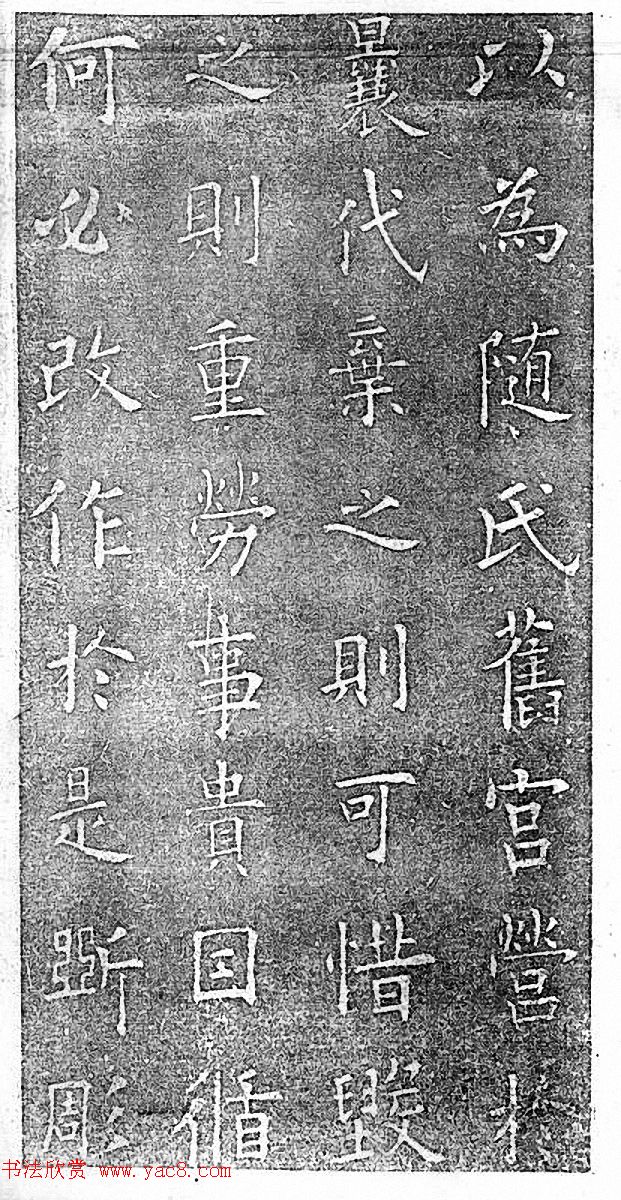 以為随氏舊宫營於
曩代棄之則可惜毀
之則重勞事貴因循
何必改作於是斲彫
书法欣赏 www.yac8.com